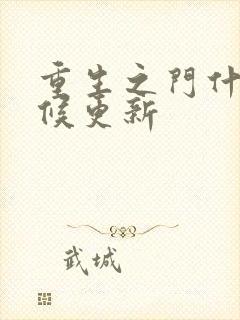 重生之門什
候更新
武城